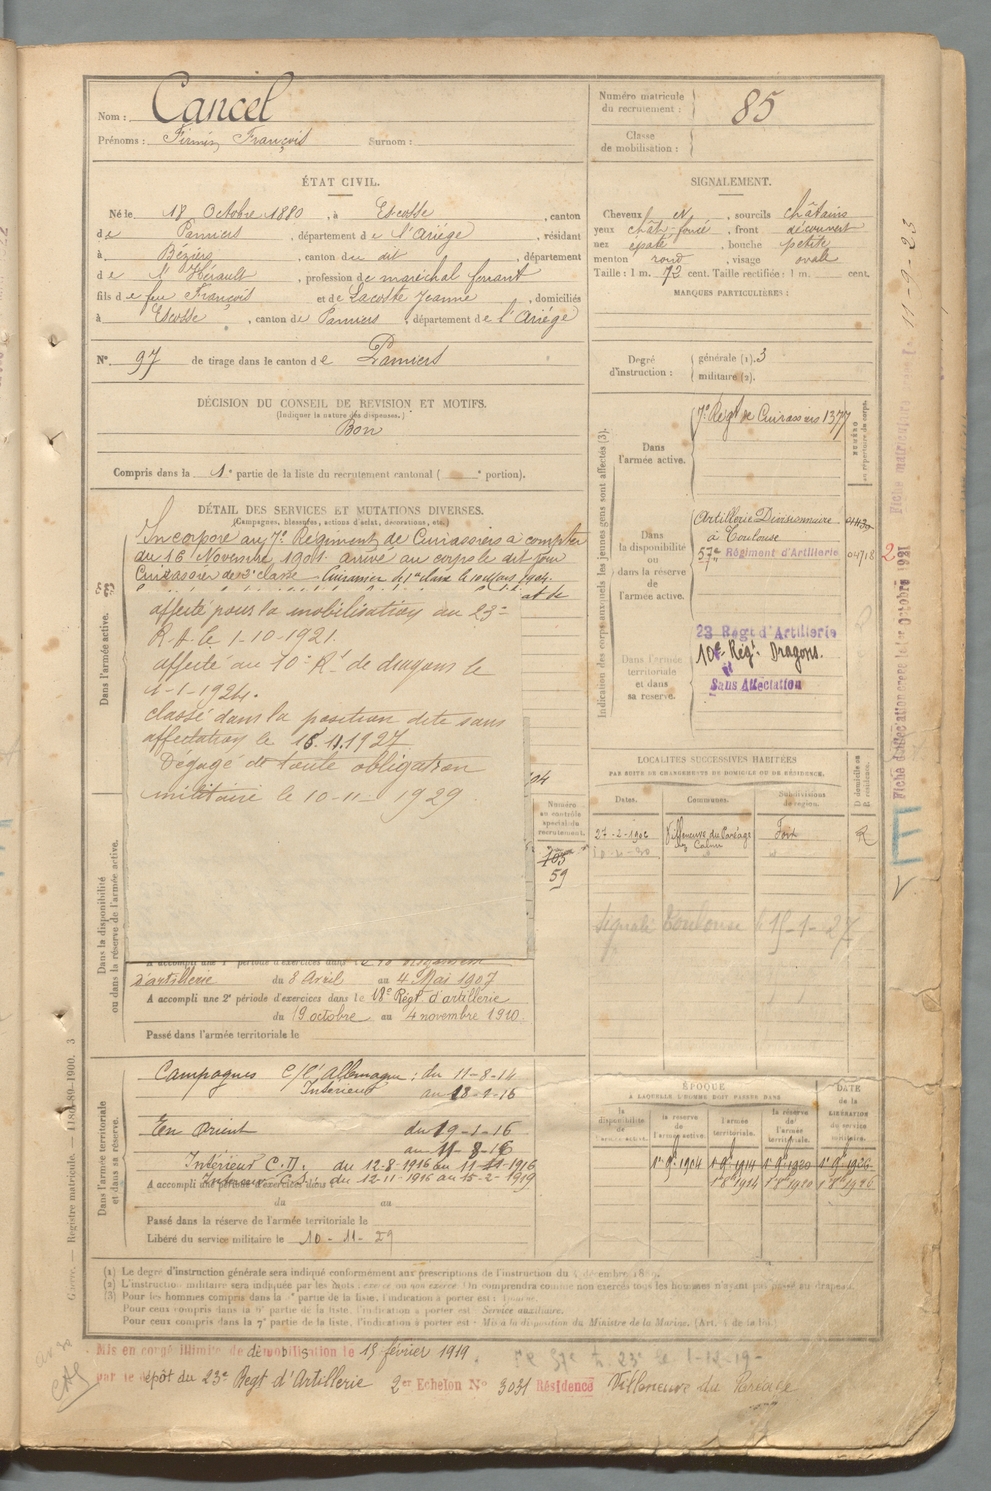 Nom : Cancel
Prénoms : Firmin François Surnom :
Numéro matricule du recrutement : 85
Classe de mobilisation :
ÉTAT CIVIL.
Né le 18 Octobre 1880, à Escosse, canton
de Pamiers, département de l'Ariège, résidant
à Béziers, canton du dit, département
de l'Hérault, profession de maréchal ferrant
fils de feu François et de Lacoste Jeanne, domiciliés
à Escosse, canton de Pamiers, département de l'Ariège
N° 97 de tirage dans le canton de Pamiers
SIGNALEMENT.
Cheveux N, sourcils châtains
yeux chât-foncé, front découvert
nez épaté, bouche petite
menton rond, visage ovale
Taille : 1 m. 72 cent. Taille rectifiée : 1 m. cent.
MARQUES PARTICULIÈRES :
Degré d'instruction : générale (1). 3
militaire (2).
DÉCISION DU CONSEIL DE REVISION ET MOTIFS.
(Indiquer la nature des dispenses.)
Bon
Compris dans la 1e partie de la liste du recrutement cantonal ( e portion).
DÉTAIL DES SERVICES ET MUTATIONS DIVERSES.
(Campagnes, blessures, actions d'éclat, décorations, etc.)
Incorporé au 7e Régiment de Cuirassiers à compter
du 16 Novembre 1901 arrivé au corps le dit jour
Cuirassier de 2e classe
at de
affecté pour la mobilisation au 23e
R.A. le 1-10-1921.
affecté au 10e Rt de dragons le
1-1-1924.
classé dans la position dite sans
affectation le 15.11.1927
Dégagé de toute obligation
militaire le 10-11-1929
Dans l'armée active.
Dans la disponibilité ou dans la réserve de l'armée active.
Numéro au contrôle spécial du recrutement.
59
d'artillerie du 8 Avril au 4 Mai 1907
A accompli une 2e période d'exercices dans le 18e Régt. d'artillerie
du 19 octobre au 4 novembre 1910.
Passé dans l'armée territoriale le
Dans l'armée territoriale et dans sa réserve.
Campagnes C/ l'Allemagne : du 11-8-14
Intérieur au 18-1-16
En Orient du 19-1-16
au 11-8-16
Intérieur C.D. du 12-8-1916 au 11-11-1916
A accompli une période d'exercices dans
du 12-11-1916 au 15-2-1919
du au
Passé dans la réserve de l'armée territoriale le
Libéré du service militaire le 10-11-29
Indication des corps auxquels les jeunes gens sont affectés (3).
NUMÉRO au répertoire du corps.
Dans l'armée active.
7e Régt de Cuirassiers 1377
Dans la disponibilité ou dans la réserve de l'armée active.
Artillerie Divisionnaire
à Toulouse
57e Régiment d'Artillerie 04718
Dans l'armée territoriale et dans sa réserve.
23 Régt d'Artillerie
10e Rég. Dragons.
Sans Affectation
LOCALITÉS SUCCESSIVES HABITÉES
PAR SUITE DE CHANGEMENTS DE DOMICILE OU DE RÉSIDENCE.
Dates. Communes. Subdivisions de région. D. domicile ou R. résidence.
27-2-1902 Villeneuve du Paréage Foix R
Signalé Toulouse le 15-1-27
ÉPOQUE
À LAQUELLE L'HOMME DOIT PASSER DANS
DATE de la LIBÉRATION du service militaire.
la disponibilité de l'armée active.
la réserve de l'armée active.
l'armée territoriale.
la réserve de l'armée territoriale.
1er 9bre 1904 1er 9bre 1914 1er 9bre 1920 1er 9bre 1926
1er 8bre 1914 1er 8bre 1920 1er 8bre 1926
(1) Le degré d'instruction générale sera indiqué conformément aux prescriptions de l'instruction du
(3) Pour les hommes compris dans la
Pour ceux compris dans la 6e partie de la liste, l'indication à porter est : Service auxiliaire.
Pour ceux compris dans la 7e partie de la liste, l'indication à porter est : Mis à la disposition du Ministre de la Marine.
Mis en congé illimité de démobilisation le 15 février 1919
par le dépôt du 23e Régt d'Artillerie 2er Echelon N° 3031 Résidence Villeneuve du Paréage
Guerre. — Registre matricule.
Fiche matriculaire
11-9-23
Fiche d'affectation créée le 1er Octobre 1921